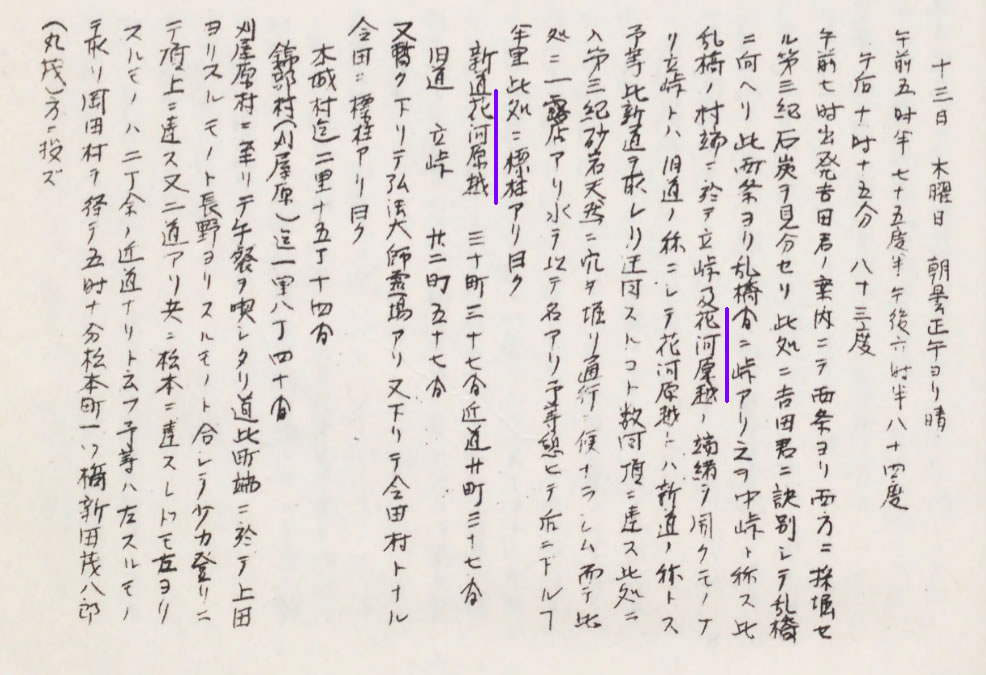 十三日 木曜日 朝曇正午ヨリ晴
午前五時半七十五度半午後六時半八十四度
午后十時十五分 八十三度
午前七時出発吉田君ノ案内ニテ西条ヨリ西方ニ採堀セ
ル第三紀石炭ヲ見分セリ此処ニ吉田君ニ訣別シテ乱橋
ニ向ヘリ此西条ヨリ乱橋間ニ峠アリ之ヲ中峠ト称ス此
乱橋ノ村端ニ於テ立峠及花河原越ノ端緒ヲ開クモノナ
リ立峠トハ旧道ノ称ニシテ花河原越トハ新道ノ称トス
予等此新道ヲ取レリ迂回スルコト数回頂ニ達ス此処ニ
入第三紀砂岩天然ニ穴ヲ堀リ通行ニ便ナラシム而テ此
処ニ一露店アリ水ヲ以テ名アリ予等憩ヒテ后ニ下ルコ
半里此処ニ標柱アリ曰ク
新道花河原越 三十町三十七間近道廿町三十七間
旧道 立峠 廿二町五十七間
又暫ク下リテ弘法大師霊場アリ又下リテ会田村トナル
会田ニ標柱アリ曰ク
本城村迄二里十五丁十四間
錦部村(刈屋原)迄一里八丁四十間
刈屋原村ニ至リテ午餐ヲ喫シタリ道此町端ニ於テ上田
ヨリスルモノト長野ヨリスルモノト合シテ少カ登リニ
テ頂上ニ達ス又二道アリ共ニ松本ニ達スレトモ左ヨリ
スルモノハ二丁余ノ近道ナリト云フ予等ハ左スルモノ
ヲ取リ岡田村ヲ径テ五時十分松本町一ツ橋新田茂八郎
(丸茂)方ニ投ズ